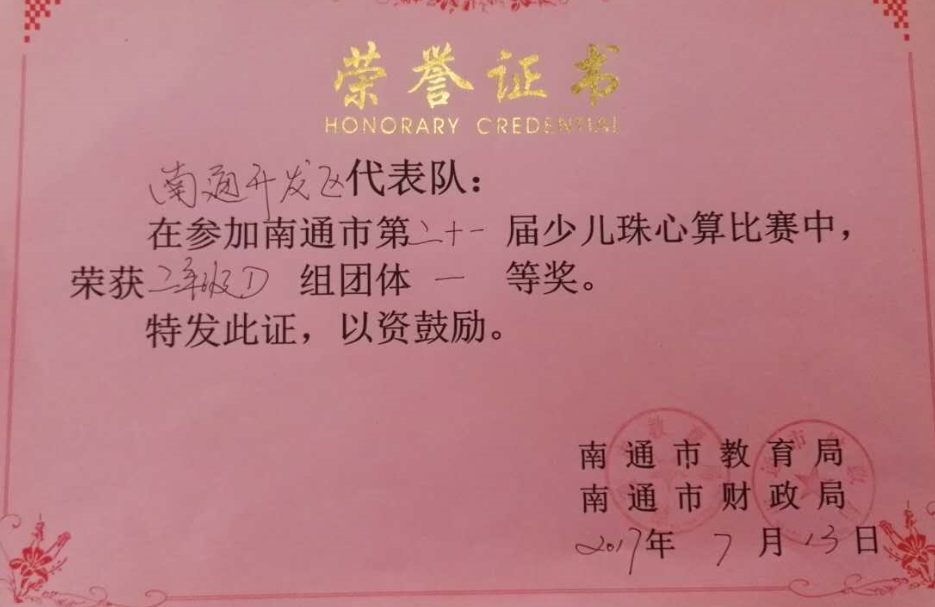 荣誉证书
HONORARY CREDENTIAL
南通开发区代表队：
在参加南通市第二十一届少儿珠心算比赛中，
荣获二年级D组团体一等奖。
特发此证，以资鼓励。
南通市教育局
南通市财政局
2017年7月13日